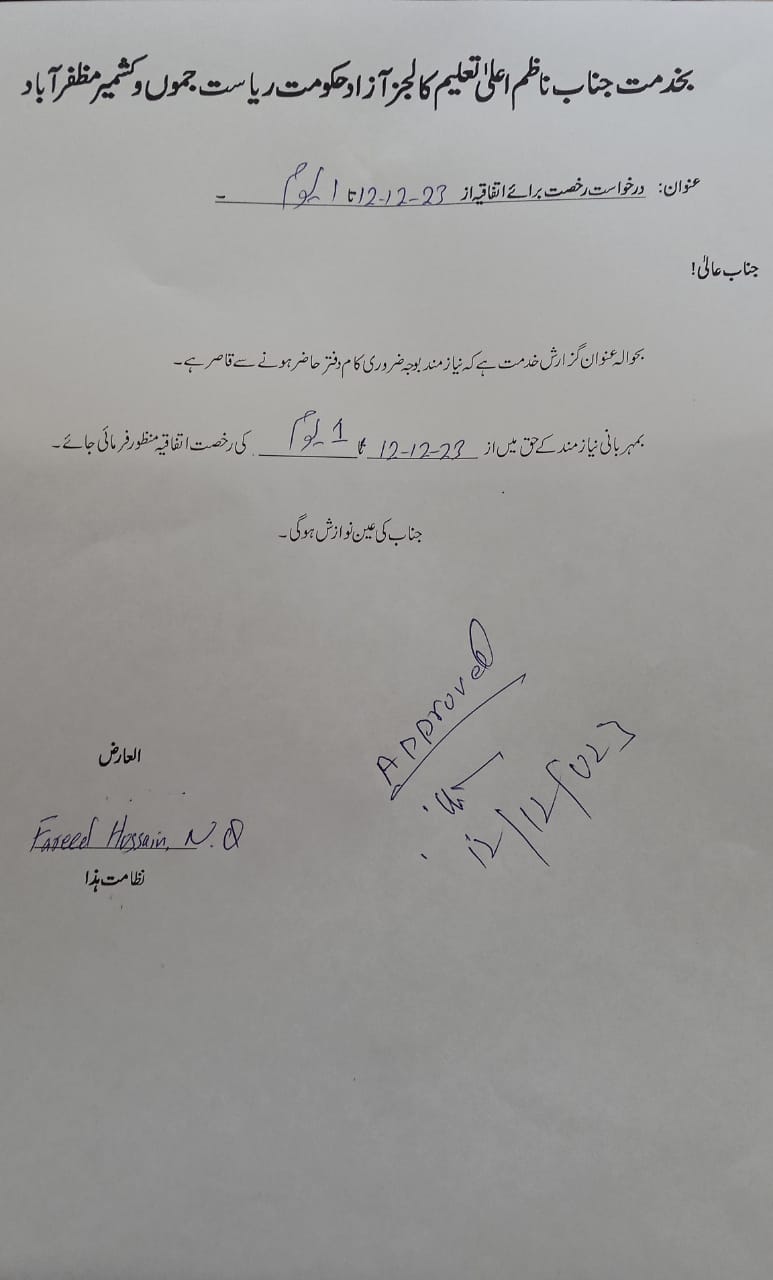 بخدمت جناب ناظم اعلیٰ تعلیم کالجز آزاد حکومت ریاست جموں و کشمیر مظفر آباد
عنوان: درخواست رخصت برائے اتفاقیہ از 12-12-23 تا 1 یوم ۔
جناب عالیٰ!
بحوالہ عنوان گزارش خدمت ہے کہ نیاز مند بوجہ ضروری کام دفتر حاضر ہونے سے قاصر ہے۔
بمہربانی نیاز مند کے حق میں از 12-12-23 تا 1 یوم کی رخصت اتفاقیہ منظور فرمائی جائے۔
جناب کی عین نوازش ہوگی۔
Approved
العارض
Fareed Hussain, N.Q
نظامت ہذا